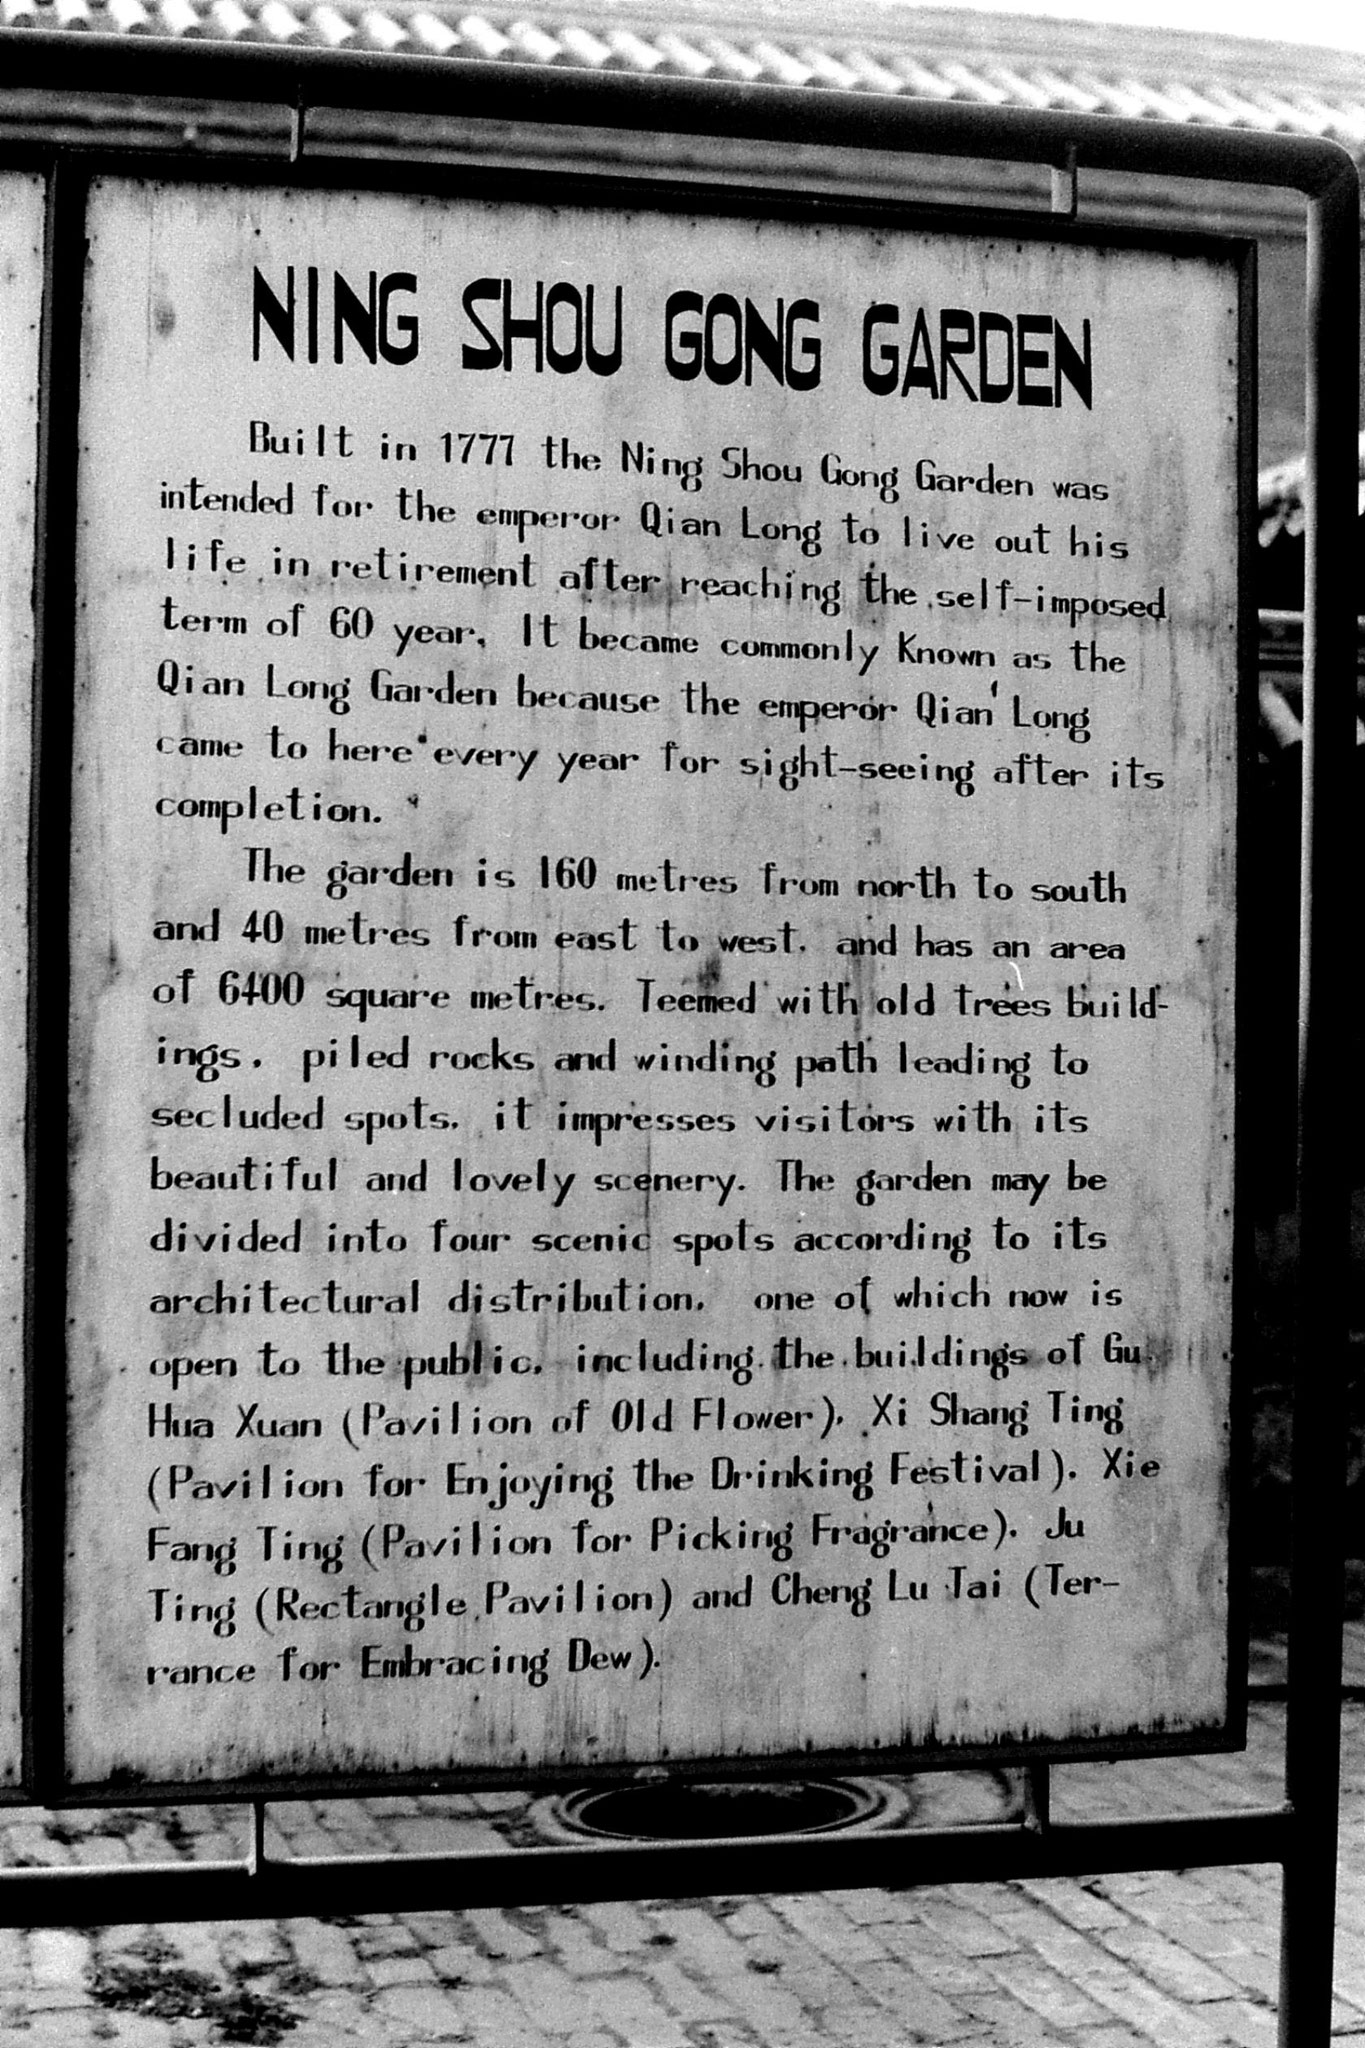 NING SHOU GONG GARDEN
Built in 1777 the Ning Shou Gong Garden was
intended for the emperor Qian Long to live out his
life in retirement after reaching the self-imposed
term of 60 year. It became commonly Known as the
Qian Long Garden because the emperor Qian Long
came to here every year for sight-seeing after its
completion.
The garden is 160 metres from north to south
and 40 metres from east to west. and has an area
of 6400 square metres. Teemed with old trees build-
ings. piled rocks and winding path leading to
secluded spots. it impresses visitors with its
beautiful and lovely scenery. The garden may be
divided into four scenic spots according to its
architectural distribution. one of which now is
open to the public. including the buildings of Gu
Hua Xuan (Pavilion of Old Flower). Xi Shang Ting
(Pavilion for Enjoying the Drinking Festival). Xie
Fang Ting (Pavilion for Picking Fragrance). Ju
Ting (Rectangle Pavilion) and Cheng Lu Tai (Ter-
rance for Embracing Dew).